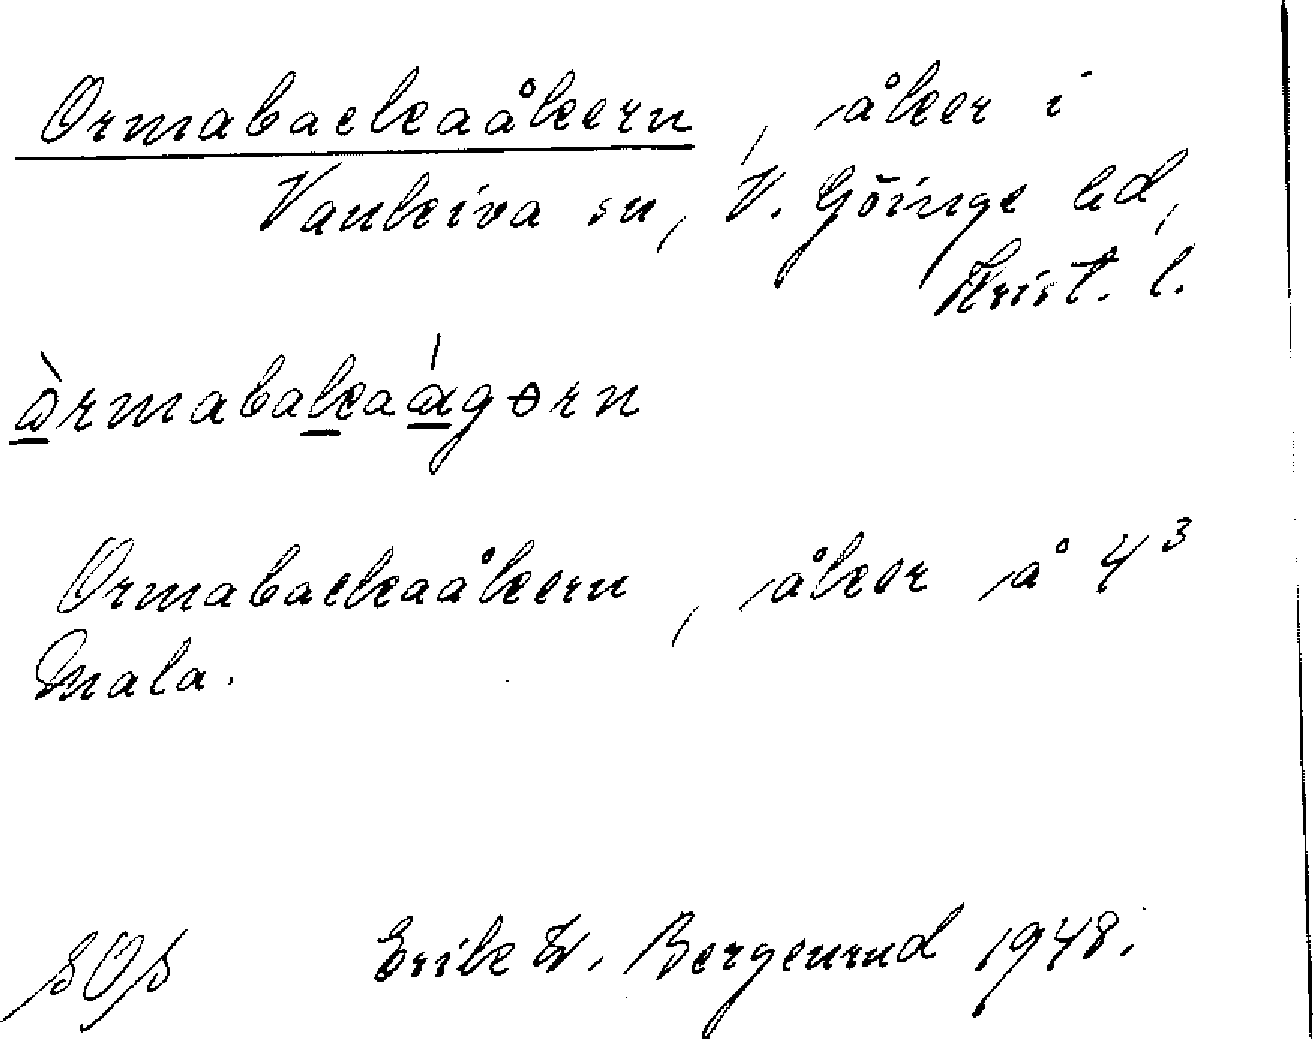 Ormabackaåkern, åker i
Vankiva sn, V. Göinge hd,
Krist. l.
òrmabakaágərn
Ormabackaåkern, åker å 4³
Mala.
Erik W. Bergenrud 1948.